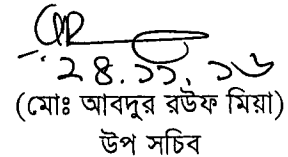 ২৪.১১.১৬
(মোঃ আবদুর রউফ মিয়া)
উপ সচিব